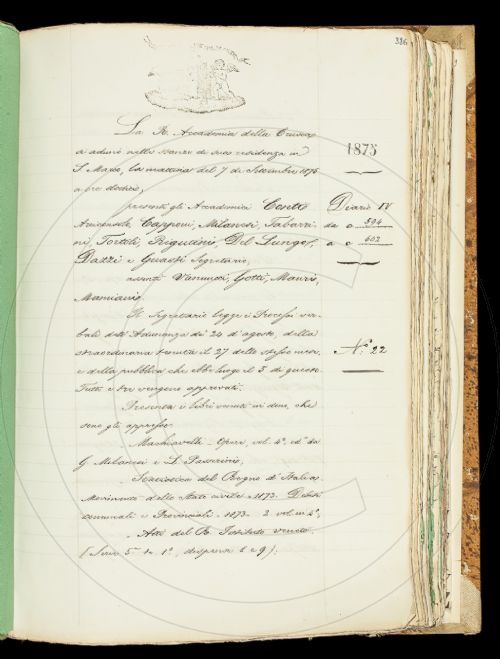 386
La R. Accademia della Crusca
si adunò nelle stanze di sua residenza in
S. Marco, la mattina del 7 di Settembre 1875
a ore dodici,
1875
presenti gli Accademici Conti
Arciconsolo, Capponi, Milanesi, Tabarri-
ni, Tortoli, Rigutini, Del Lungo,
Dazzi e Guasti Segretario,
assenti Vannucci, Gotti, Mauri,
Mamiani.
Diario IV
da c 594
a c 602
Il Segretario legge i Processi ver-
bali dell'Adunanza de' 24 d'agosto, della
straordinaria tenuta il 27 dello stesso mese,
e della pubblica che ebbe luogo il 5 di questo.
Tutti e tre vengono approvati.
N.º 22
Presenta i libri venuti in dono, che
sono gli appresso:
Machiavelli - Opere, vol. 4º, ed.e da
G. Milanesi e L. Passerini,
Statistica del Regno d'Italia.
Movimento dello Stato civile - 1873. Debiti
comunali e Provinciali - 1873 - 2 vol. in 4º,
Atti del R. Istituto veneto.
(Serie 5.a to. 1º, dispensa 6 e 9).